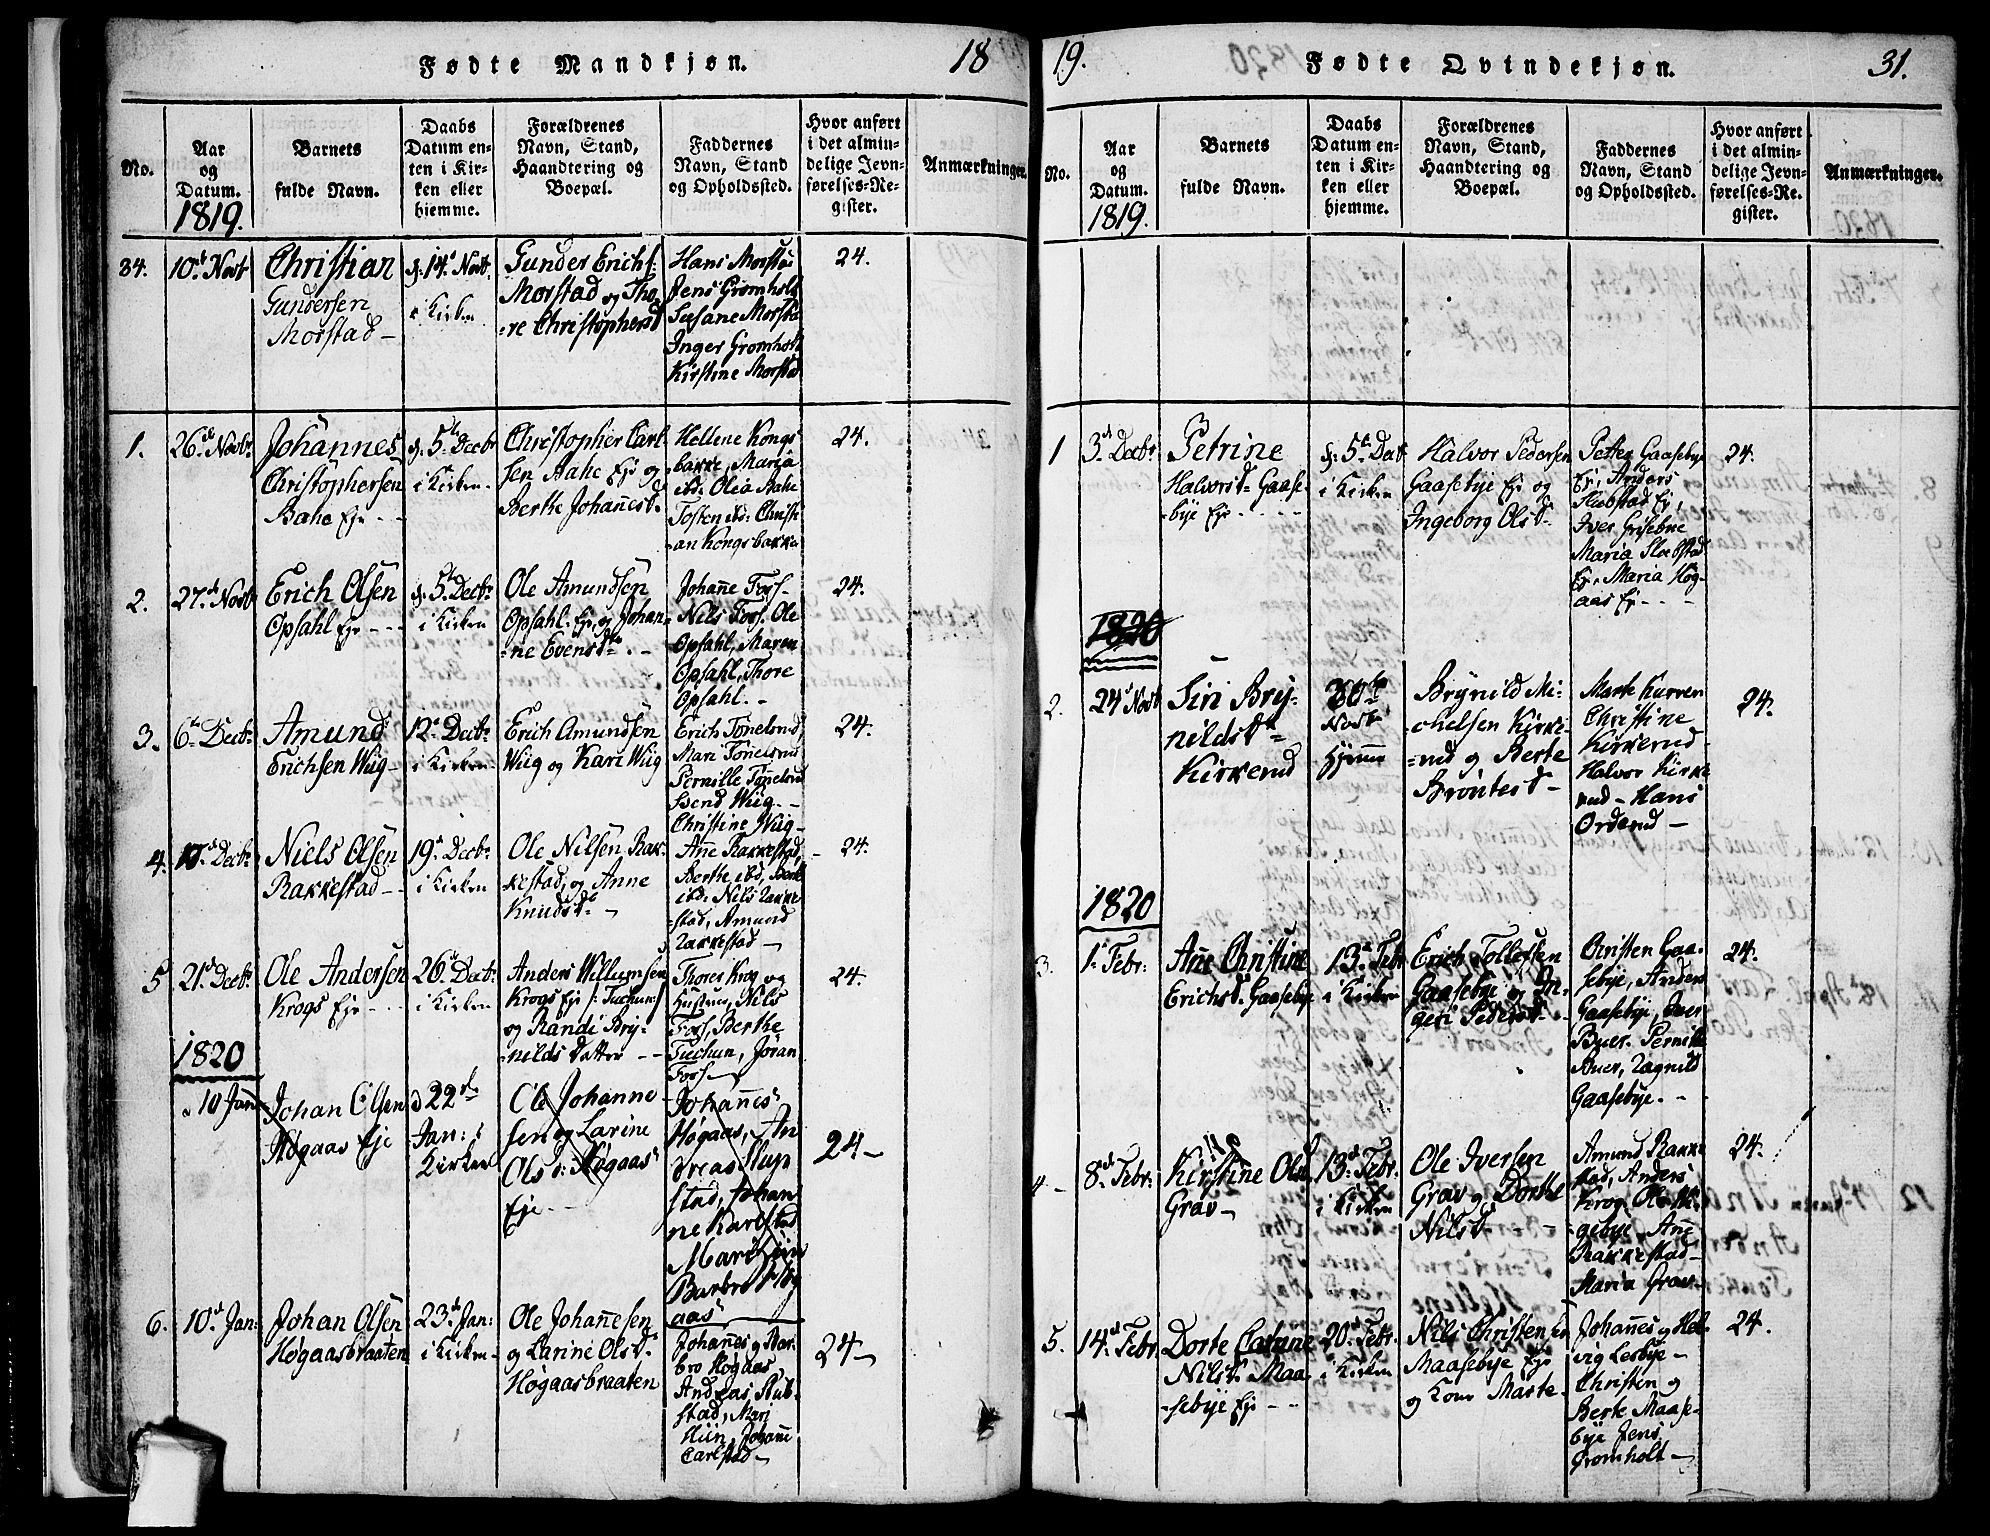 Fødte Mandkjøn.
18
No.
Aar
og
Datum.
1819.
Barnets
fulde Navn.
Daabs
Datum en-
ten i Kir-
ken eller
hjemme.
Forældrenes
Navn, Stand,
Haandtering og
Boepæl.
Faddernes
Navn, Stand
og Opholdssted.
Hvor anført
i det almin-
delige Jevn-
førelses-Re-
gister.
Anmærkninger.
34.
10d Novb
Christian
Gundersen
Morstad -
d. 14d Novb.
i Kirken
Gunder Erichs:
Morstad og Tho-
=re Christophersd
Hans Morstad
Jens Gromholt
Susane Morstad
Inger Gromholt
Kirstine Morstad
24.
1.
26de Novbr
Johannes
Christophersen
Bahe Eje - -
d. 5te Decbr
i Kirken -
Christopher Carl
sen Aahe Eje og
Berthe Johannesd.
Hellene Kongs
bakke, Maria
ibd. Olia Bahe
Tosten ibd. Christi
an Kongsbakke
24.
2.
27de Novb
Erich Olsen
Opsahl Eje - - -
d. 5te Decbr
i Kirken
Ole Amundsen
Opsahl. Eje og Johan=
=ne Evensdtr. -
Johane Fors.
Nils Fors. Ole
Opsahl, Maren
Opsahl, Thore
Opsahl. -
24.
3.
6te Decbr
Amund
Erichsen Wiig -
12te Decbr
i Kirken -
Erich Amundsen
Wiig og Kari Wiig
Erich Tønelsrud,
Mari Tønelsrud
Pernille Tønelsrud
Bend Wiig. -
Christine Wiig -
24.
4.
10de Decbr
Niels Olsen
Rakkestad - -
19de Decbr
i Kirken
Ole Nilsen Rak-
kestad, og Anne
Knudsdr -
Ane Rakkestad,
Berthe ibd, Berth
ibd. Nils Rakke
stad, Amund
Rakkestad -
24.
5
21de Decbr
Ole Andersen
Krogs Eje - - -
26de Decbr
i Kirken
Anders Willumsen
Krogs Eje /: Tuchun:/
og Randi Bry=
=nilds Datter - -
Thorer Krog og
Hustrue, Nils
Fors, Berthe
Tuchun, Jøran
Fors -
24.
1820
10 Jan
Johan Olsen
Høgaas Eje
d 22de
Jan: i
Kirken
Ole Johanne
sen og Larine
Olsd: Høgaas
Eje. - -
Johannes
Høgaas, An
dreas Stub
stad, Johan
ne Karlstad
Mari Hiin
Barbro Høg
aas
24 -
6.
10d Jan:
Johan Olsen
Høgaasbraaten
23de Jan:
i Kirken -
Ole Johannesen
og Larine Olsd.
Høgaasbraaten
Johannes og Bar-
bro Høgaas
Andreas Stub-
stad, Mari
Hiin, Johane
Carlstad -
24 -
19.
Fødte Qvindekjøn.
31.
No.
Aar
og
Datum.
1819.
Barnets
fulde Navn.
Daabs
Datum en-
ten i Kir-
ken eller
hjemme.
Forældrenes
Navn, Stand,
Haandtering og
Boepæl.
Faddernes
Navn, Stand
og Opholdssted.
Hvor anført
i det almin-
delige Jevn-
førelses-Re-
gister.
Anmærkninger.
1
3de Decbr
Petrine
Halvorsdr Gaase-
=bye Eje - - - -
d. 5te Decb
i Kirken -
Halvor Pedersen
Gaasebye Eje og
Ingeborg Olsdr
Petter Gaasebye
Ej., Anders
Slobstad Ej,
Iver Grisebne
Maria Slobstad
Ej., Maria Høg-
aas Ej - - -
24.
1820
2.
24d Novb
Siri Bry-
nildsdtr
Kirkerud
30te
Novb.
Hjemme
Brynild Mi-
chelsen Kirke-
=rud og Berte
Brøntesd -
Marte Kurven
Christine
Kirkerud -
Halvor Kirke
rud - Hans
Orderud -
24.
1820
3.
1d Febr:
Ane Christine
Erichsd. Gaasebye
13de Febr
i Kirken
Erich Tollefsen
Gaasebye og In-
geri Pedersd - -
Christen Gaa-
sebye, Anders
Gaasebye, Iver
Buer. Pernille
Buer, Ragnild
Gaasebye. - -
24.
4 -
8de Febr:
Kirstine Olsd
Grav -
13de Febr.
i Kirken
Ole Iversen
Grav og Dorthe
Nilsdr - -
Amund Rakke
stad, Anders
Krog, Ole
gebye, Ane
Rakkestad -
Maria Grav -
24.
5.
14de Febr
Dorte Catrine
Nilsdr Maa-
=sebye Eje - -
20de Febr.
i Kirken
Nils Christensen
Maasebye Eje
og Kone Marte -
Johanes og Hel-
vig Lesbye -
Christen og
Berte Maase-
bye Jens
Gromholt -
24.